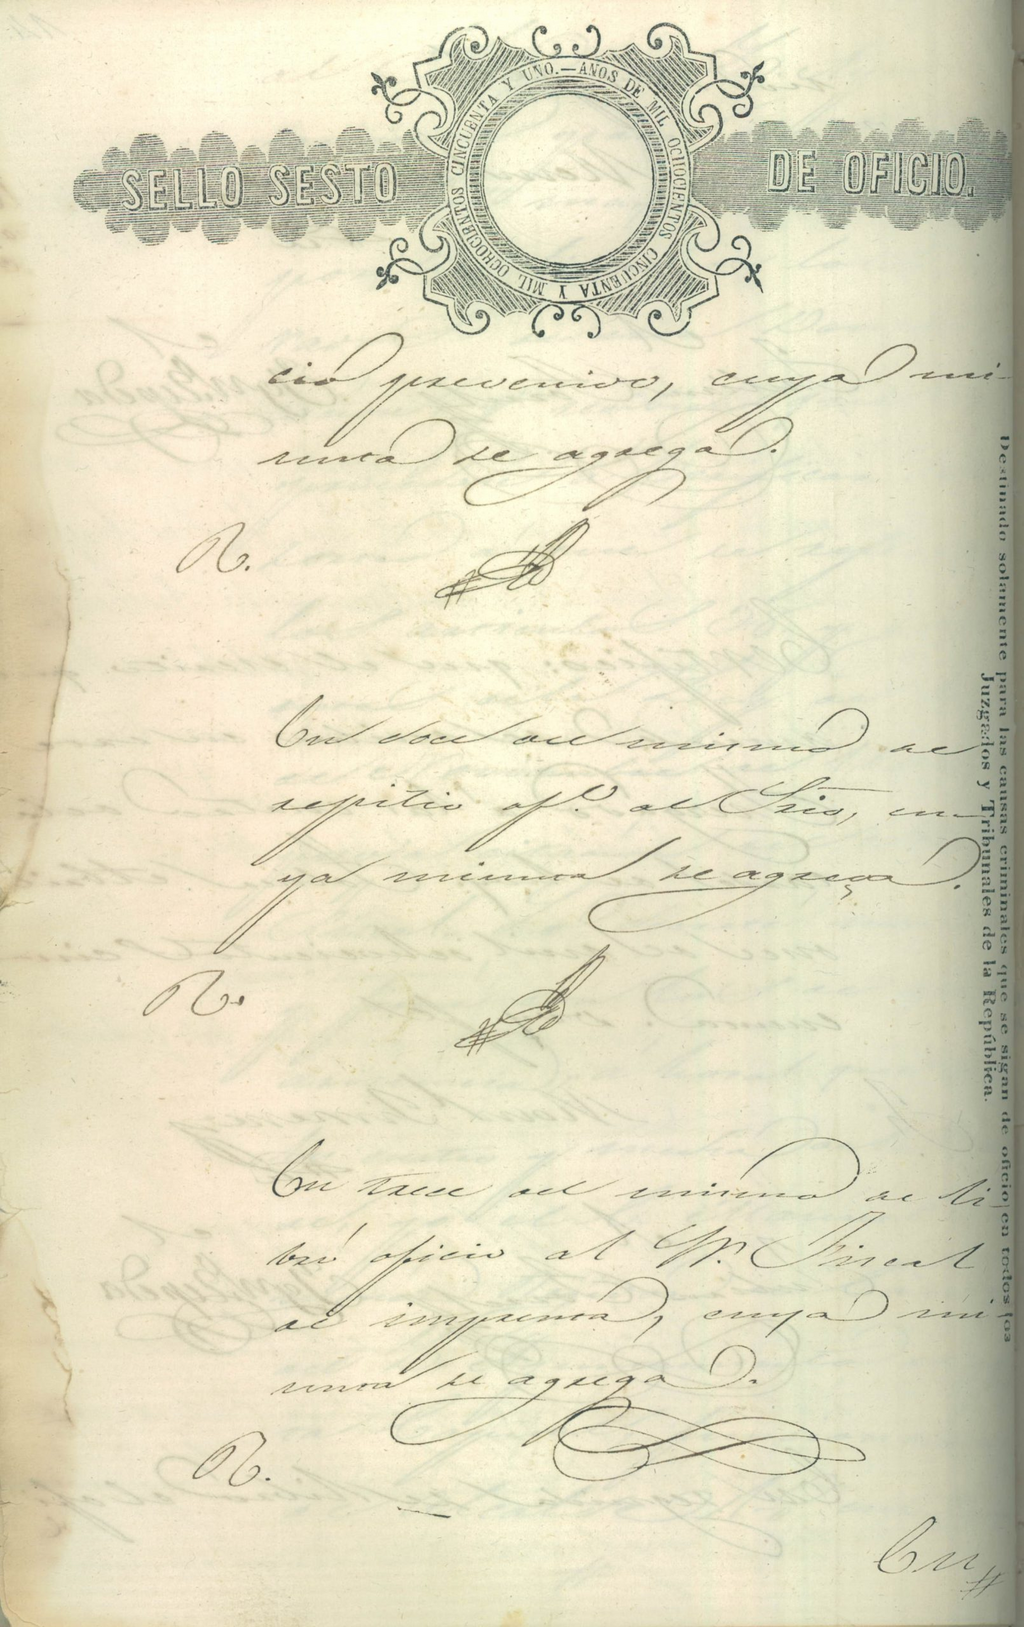 SELLO SESTO DE OFICIO.
AÑOS DE MIL OCHOCIENTOS CINCUENTA Y MIL OCHOCIENTOS CINCUENTA Y UNO.—
cio prevenido, cuya mi-
nuta se agrega.
R.
En doce del mismo se
repitio of.o al Srio, cu-
ya minuta se agrega.
R.
En trece del mismo se li-
bró oficio al Sr. Fiscal
de imprenta, cuya mi-
nuta se agrega.
R.
En
Destinado solamente para las causas criminales que se sigan de oficio en todos los
Juzgados y Tribunales de la República.